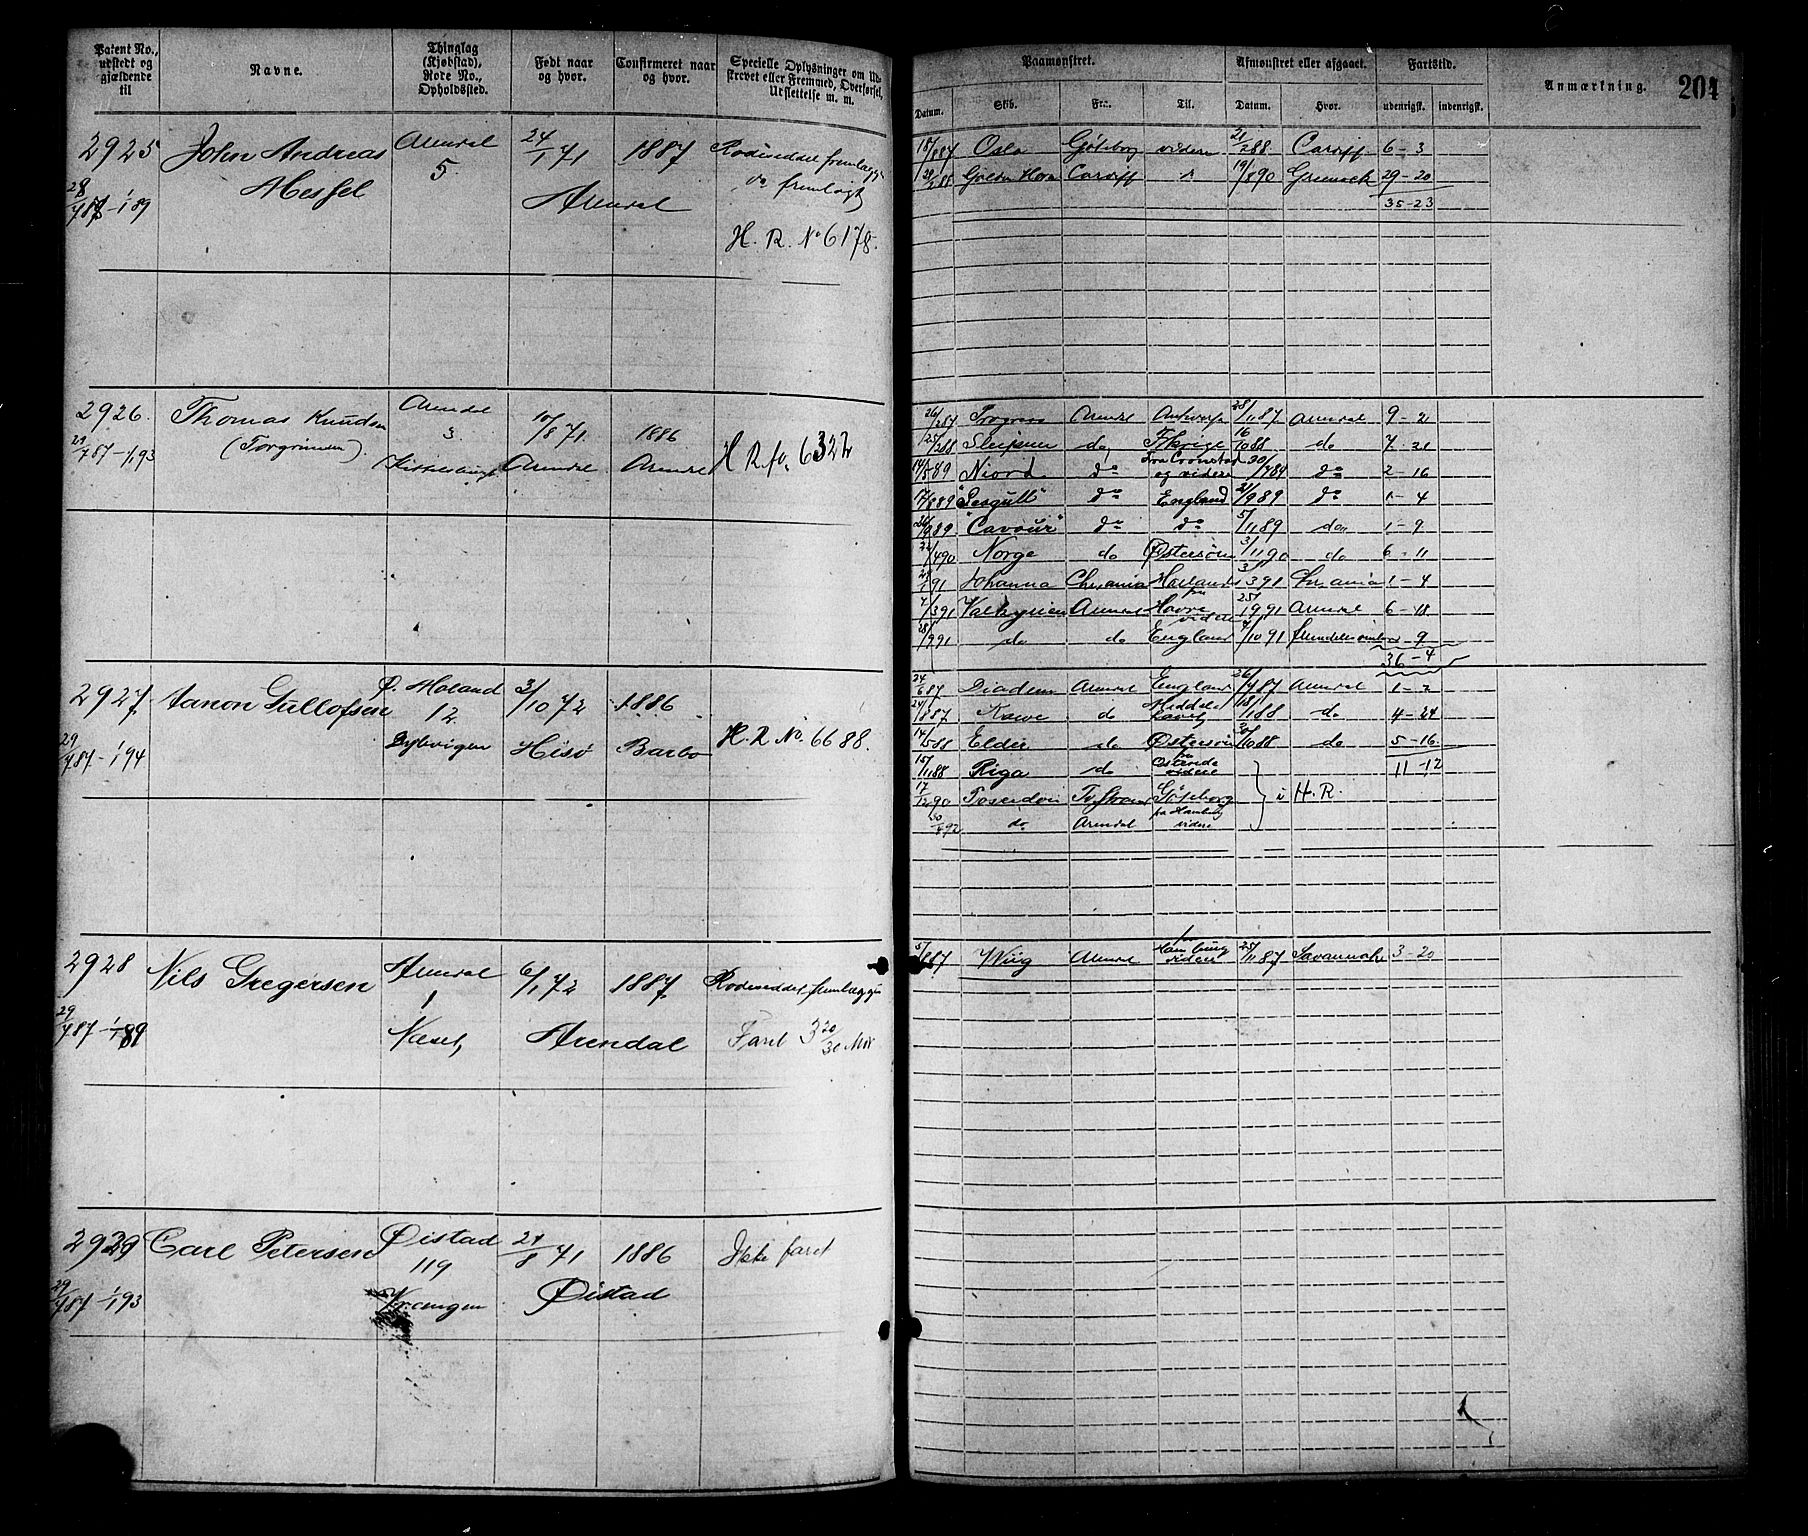 Patent No., udstedt og gjældende til
Navne.
Thinglag (Kjøbstad), Rode No., Opholdssted.
Født naar og hvor.
Confirmeret naar og hvor.
Specielle Oplysninger om Udskrevet eller Fremmed, Overførsel, Udslettelse m. m.
Paamønstret.
Afmønstret eller afgaaet.
Fartstid.
Anmærkning.
204
Datum. Skib. Fra: Til. Datum. Hvor. udenrigsk. indenrigsk.
2925 John Andreas Arendal 24/1 71 1887 Rodeseddel fremlægges
Messel 5 do fremlagt
28/7 87 - 1/1 89 Arendal
H. R. No 6178.
18/8 87 Oslo Göteborg videre 21/2 88 Cardiff 6-3
Golden Horn Cardiff 19/8 90 Greenock 29-20
35-23
2926. Thomas Knudsen Arendal 10/8 71 1886
(Torgrimsen). 3. Arendal Arendal H R fo. 6322
29/7 87 - 1/1 93
26/2 87 Arendal Antwerp 28/11 87 Arendal 9-2
25/2 88 Sleipner do 16/10 88 do 7-21
14/5 89 Niord do Fra Cronstad og videre 30/7 89 do 2-16
17/8 89 "Seagull" do England 21/9 89 do 1-4
26/9 89 "Cavour" do do 5/11 89 do 1-9
22/4 90 Norge do Østersøen 3/11 90 do 6-11
Johanna Chr.ania Holland 3 91 Chr.ania 1-4
7/3 91 Valkyrien Arendal Havre videre 25/9 91 Arendal 6-18
28/9 91 do do England 7/10 91 9
36-4
2927 Aanon Gullofsen Ø. Moland 3/10 72 1886
12 H. R No. 6688.
29/7 87 - 1/1 94 Hisö Barbo
24/6 87 Diadem Arendal England 26/7 87 Arendal 1-2
24/8 87 do Middelhavet 18/1 88 do 4-24
14/5 88 Elder do Østersøen 10 88 do 5-16
15/11 88 Riga do Ostende videre 11-12
17/12 90 Poseidon Göteborg i H.R.
92 do Arendal fra Hamburg videre
2928 Nils Gregersen Arendal 6/1 72 1887 Rodeseddel fremlægges
1
29/7 87 - 1/1 89 Næset, Arendal Faret 3 20/30 Mdr
5/8 87 Wiig Arendal Hamburg videre 25/11 87 Savannah 3-20
2929 Carl Petersen Øistad 24/8 71 1886 Ikke faret
119
29/7 87 - 1/1 93 Vrængen Øistad